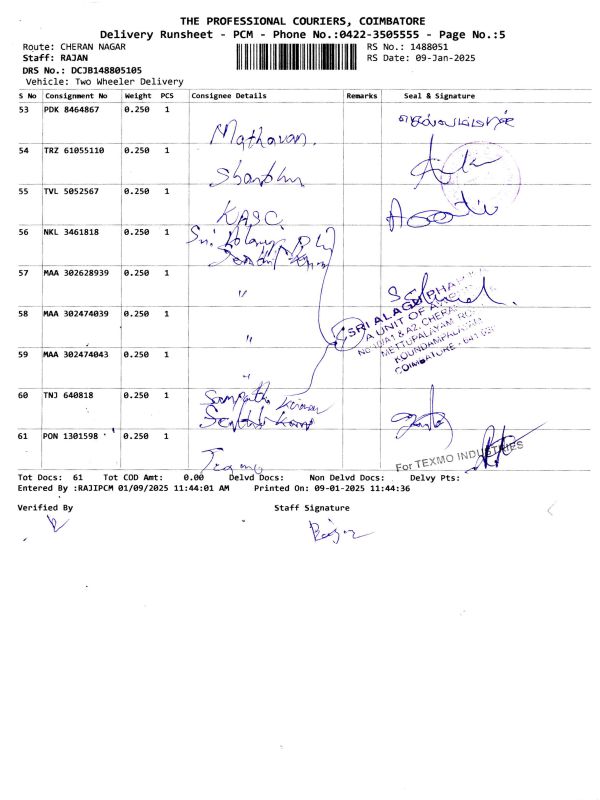 THE PROFESSIONAL COURIERS, COIMBATORE
Delivery Runsheet - PCM - Phone No.:0422-3505555 - Page No.:5
Route: CHERAN NAGAR RS No.: 1488051
Staff: RAJAN RS Date: 09-Jan-2025
DRS No.: DCJB148805105
Vehicle: Two Wheeler Delivery
S No Consignment No Weight PCS Consignee Details Remarks Seal & Signature
53 PDK 8464867 0.250 1 Mathavan.
54 TRZ 61055110 0.250 1
55 TVL 5052567 0.250 1 KASC
56 NKL 3461818 0.250 1 Sri
57 MAA 302628939 0.250 1 "
58 MAA 302474039 0.250 1 "
SRI ALAGU PHARMA
A UNIT OF
No. 10/A1 & A2, CHERAN
METTUPALAYAM RO
KOUNDAMPALAYAM
COIMBATORE - 641 030
59 MAA 302474043 0.250 1 "
60 TNJ 640818 0.250 1 Sampath Kumar
Senthil Kumar
61 PON 1301598 0.250 1
For TEXMO INDUSTRIES
Tot Docs: 61 Tot COD Amt: 0.00 Delvd Docs: Non Delvd Docs: Delvy Pts:
Entered By :RAJIPCM 01/09/2025 11:44:01 AM Printed On: 09-01-2025 11:44:36
Verified By Staff Signature